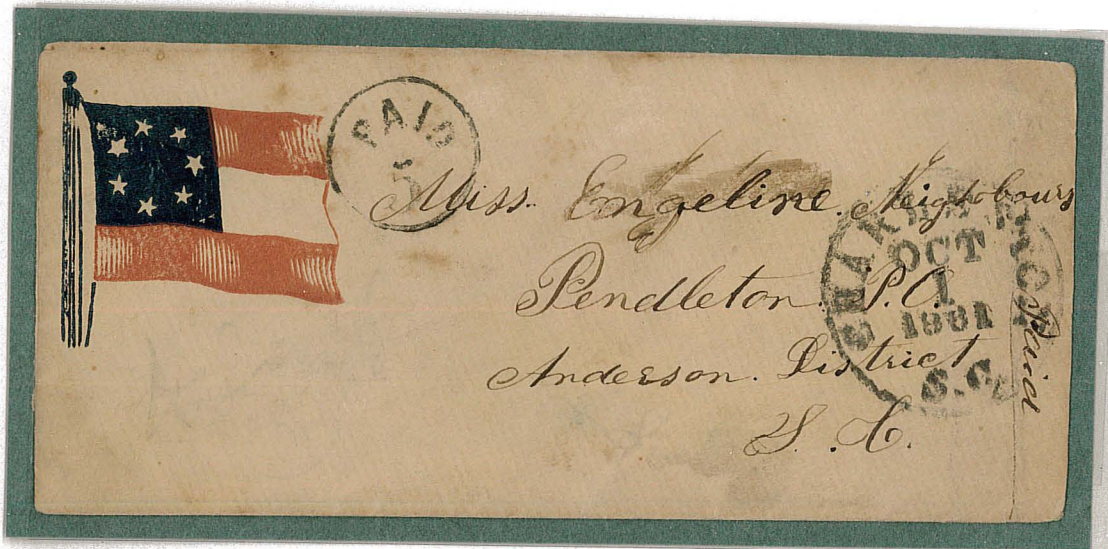 PAID
5
Miss. Engeline. Neighbours
Pendleton. P.O.
Anderson. District
S. C.
CHARLESTON
OCT
1
1861
S.C.
Paid